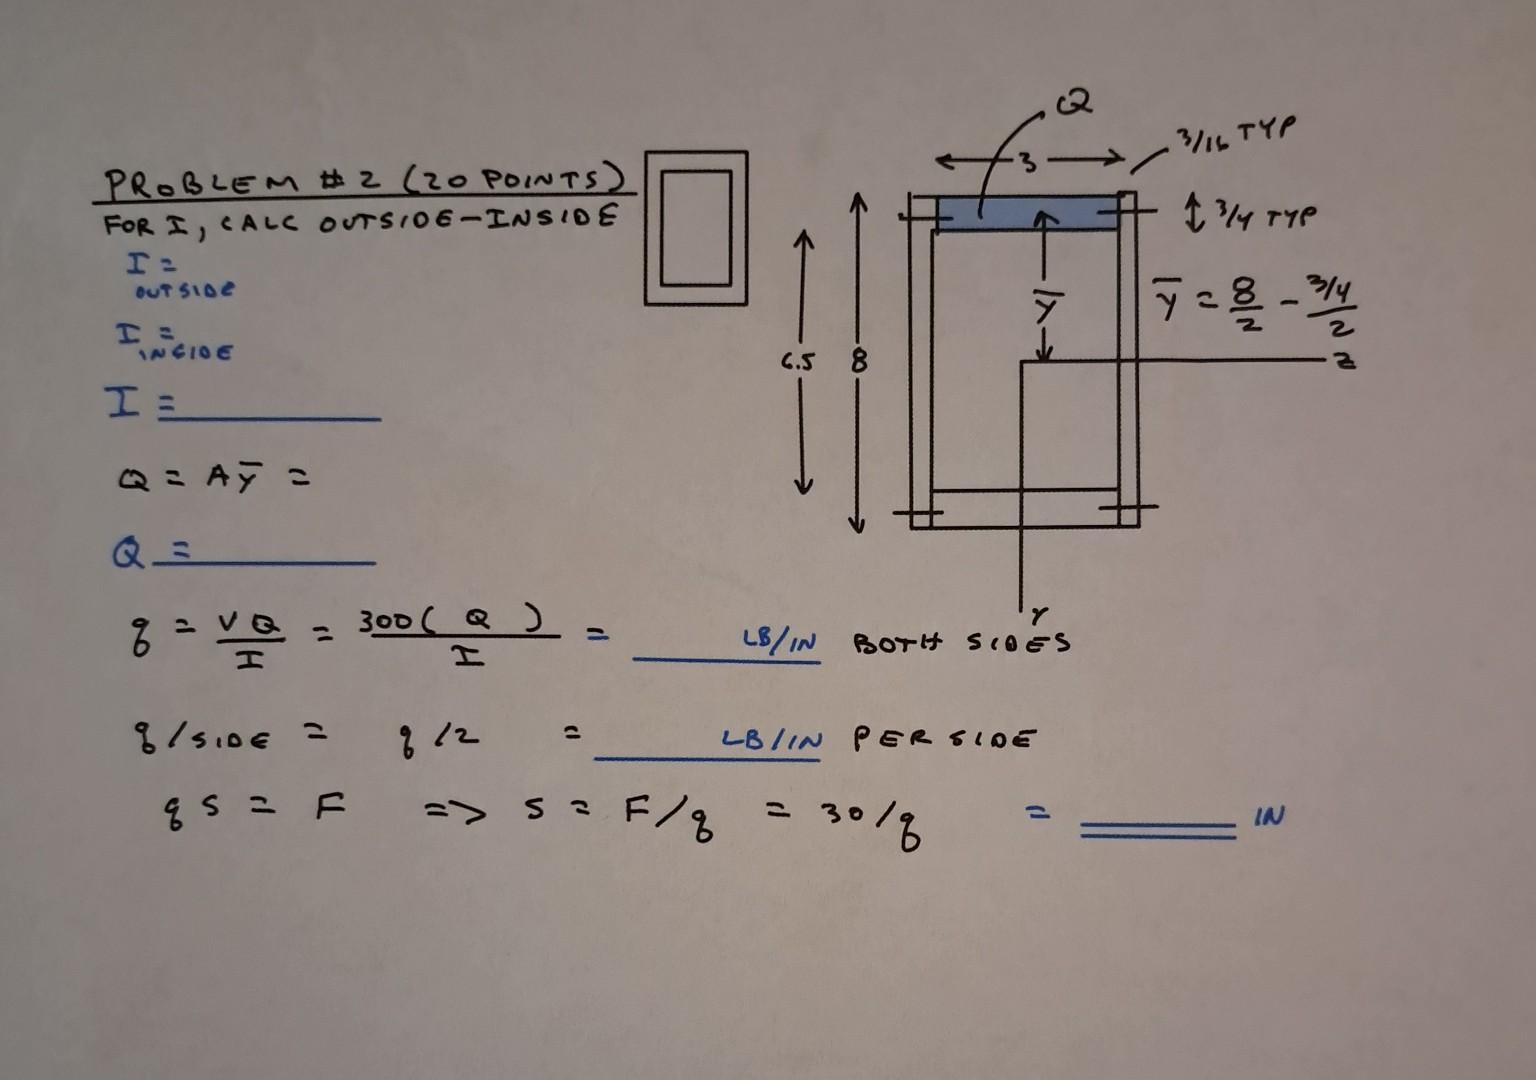 PROBLEM #2 (20 POINTS)
FOR I, CALC OUTSIDE-INSIDE
I =
OUTSIDE
I =
INSIDE
I =
Q = A ȳ =
Q =
q = VQ/I = 300( Q )/I = LB/IN BOTH SIDES
q/SIDE = q/2 = LB/IN PER SIDE
q S = F => S = F/q = 30/q = IN
Q
3/16 TYP
3
3/4 TYP
ȳ
ȳ = 8/2 - 3/4/2
6.5
8
z
Y